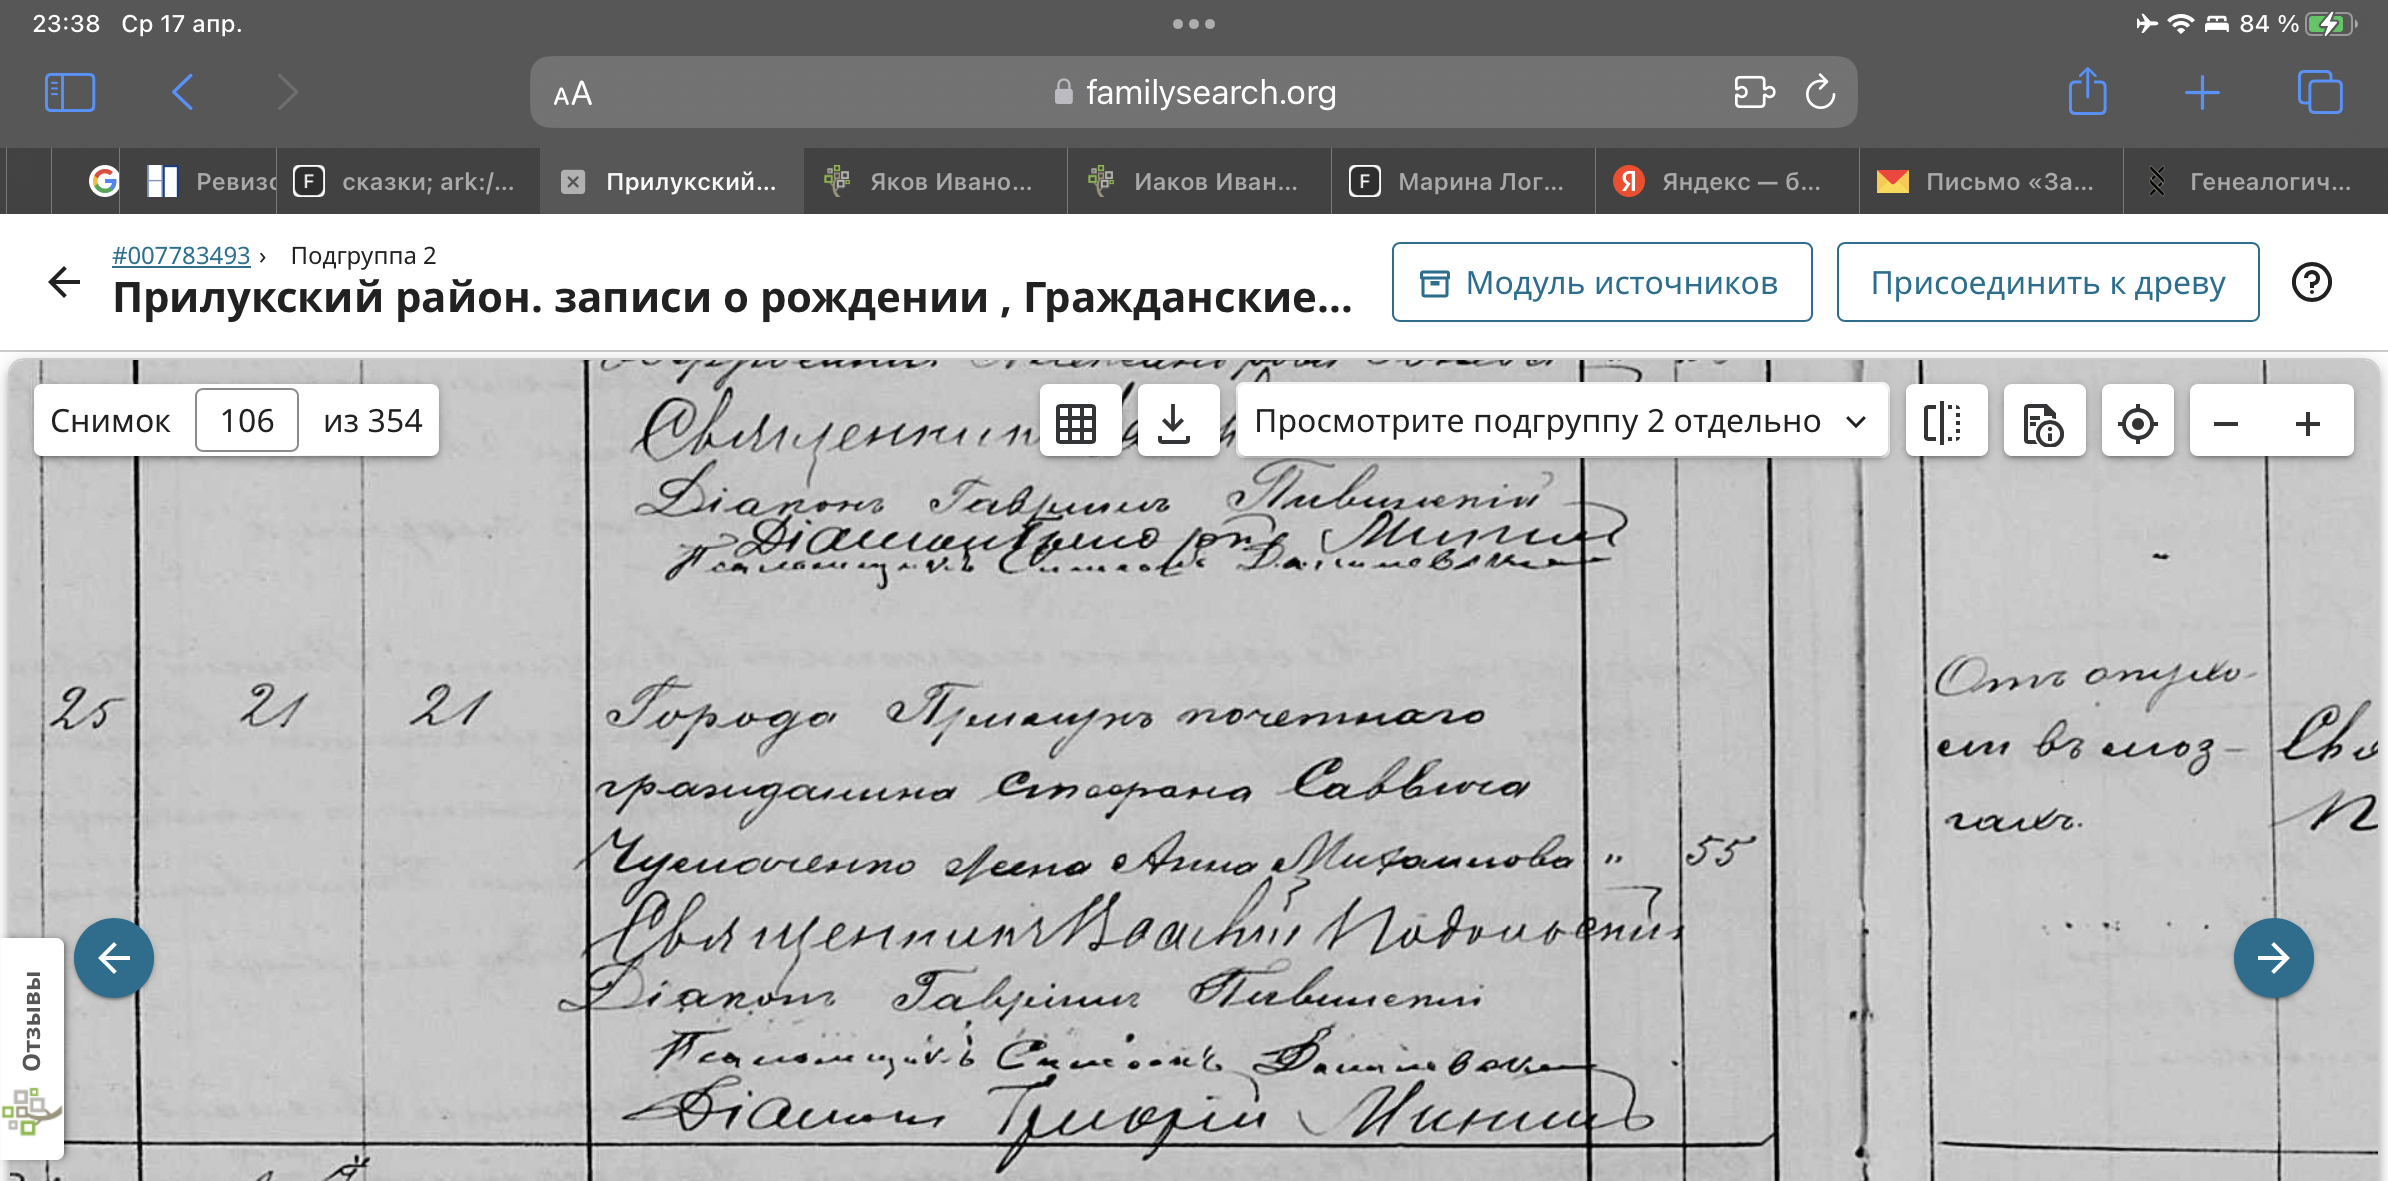 23:38 Ср 17 апр.
84 %
AA
familysearch.org
Ревизс
сказки; ark:/...
Прилукский...
Яков Ивано...
Иаков Иван...
Марина Лог...
Яндекс — б...
Письмо «За...
Генеалогич...
#007783493 › Подгруппа 2
Прилукский район. записи о рождении , Гражданские...
Модуль источников
Присоединить к древу
Снимок 106 из 354
Просмотрите подгруппу 2 отдельно
Священникъ
Діаконъ Гавріилъ
Діаконъ
Псаломщикъ Симеонъ Данилевскій
25 21 21
Города Прилукъ почетнаго
гражданина Стефана Саввича
Чумаченко жена Анна Михаилова " 55
Священникъ Василій Подольскій
Діаконъ Гавріилъ
Псаломщикъ Симеонъ Данилевскій
Діаконъ Григорій
Отъ опухо-
ли въ моз-
гахъ.
Отзывы